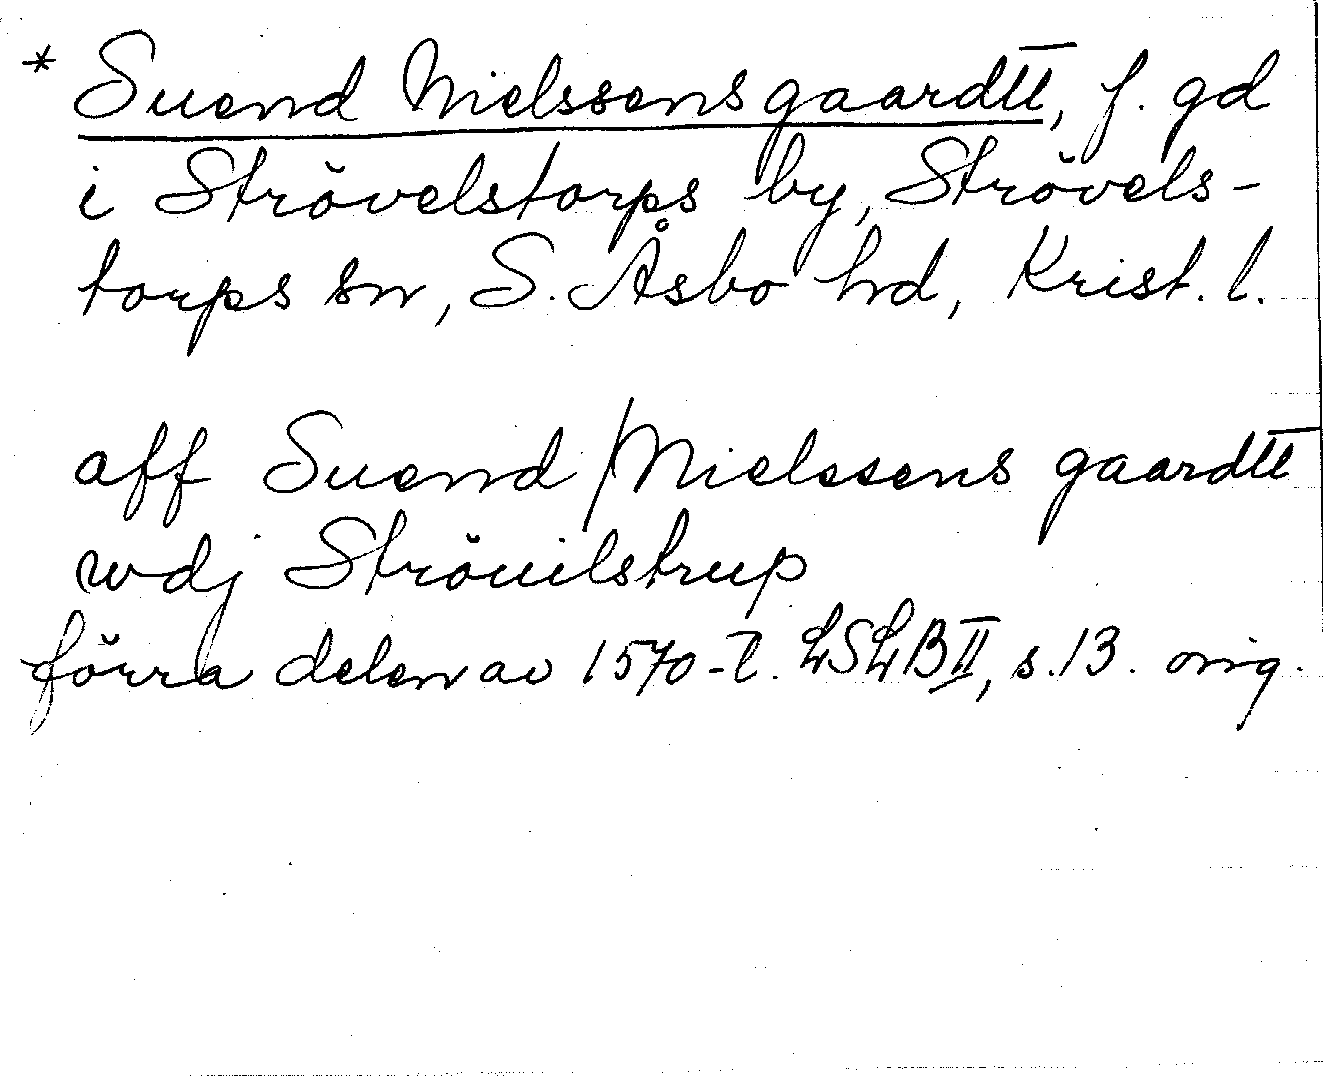 * Suend Nielssens gaardtt, f. gd
i Strövelstorps by, Strövels-
torps sn, S. Åsbo hd, Krist. l.
aff Suend / Nielssens gaardtt
wdj Ströuilstrup
förra delen av 1570-t. LSLB II, s. 13. orig.